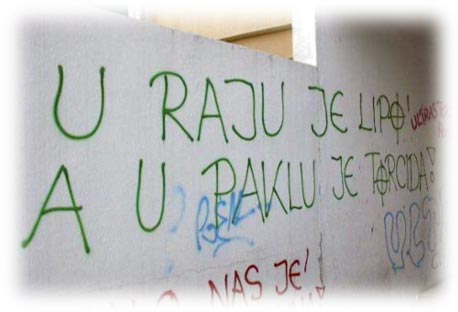 U RAJU JE LIPO!
A U PAKLU JE TORCIDA!
NAS JE!